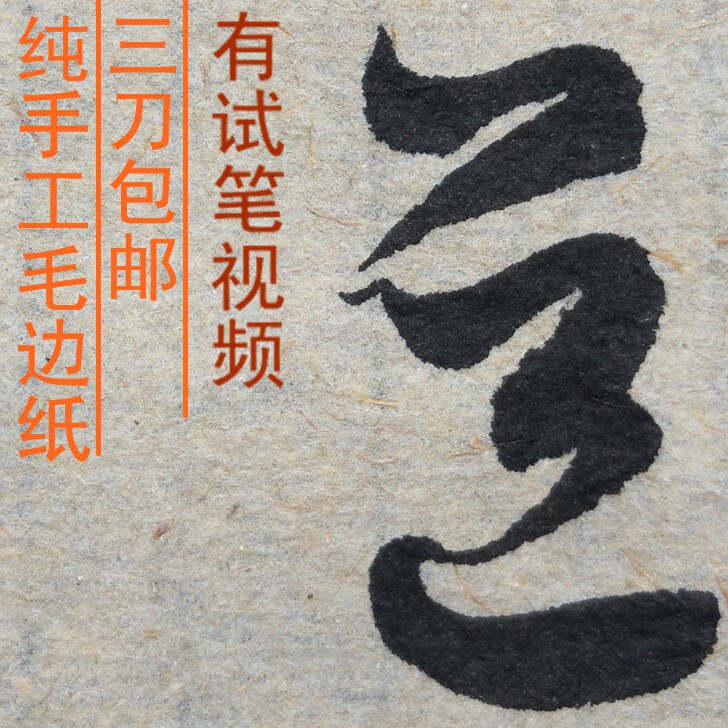 有试笔视频
三刀包邮
纯手工毛边纸